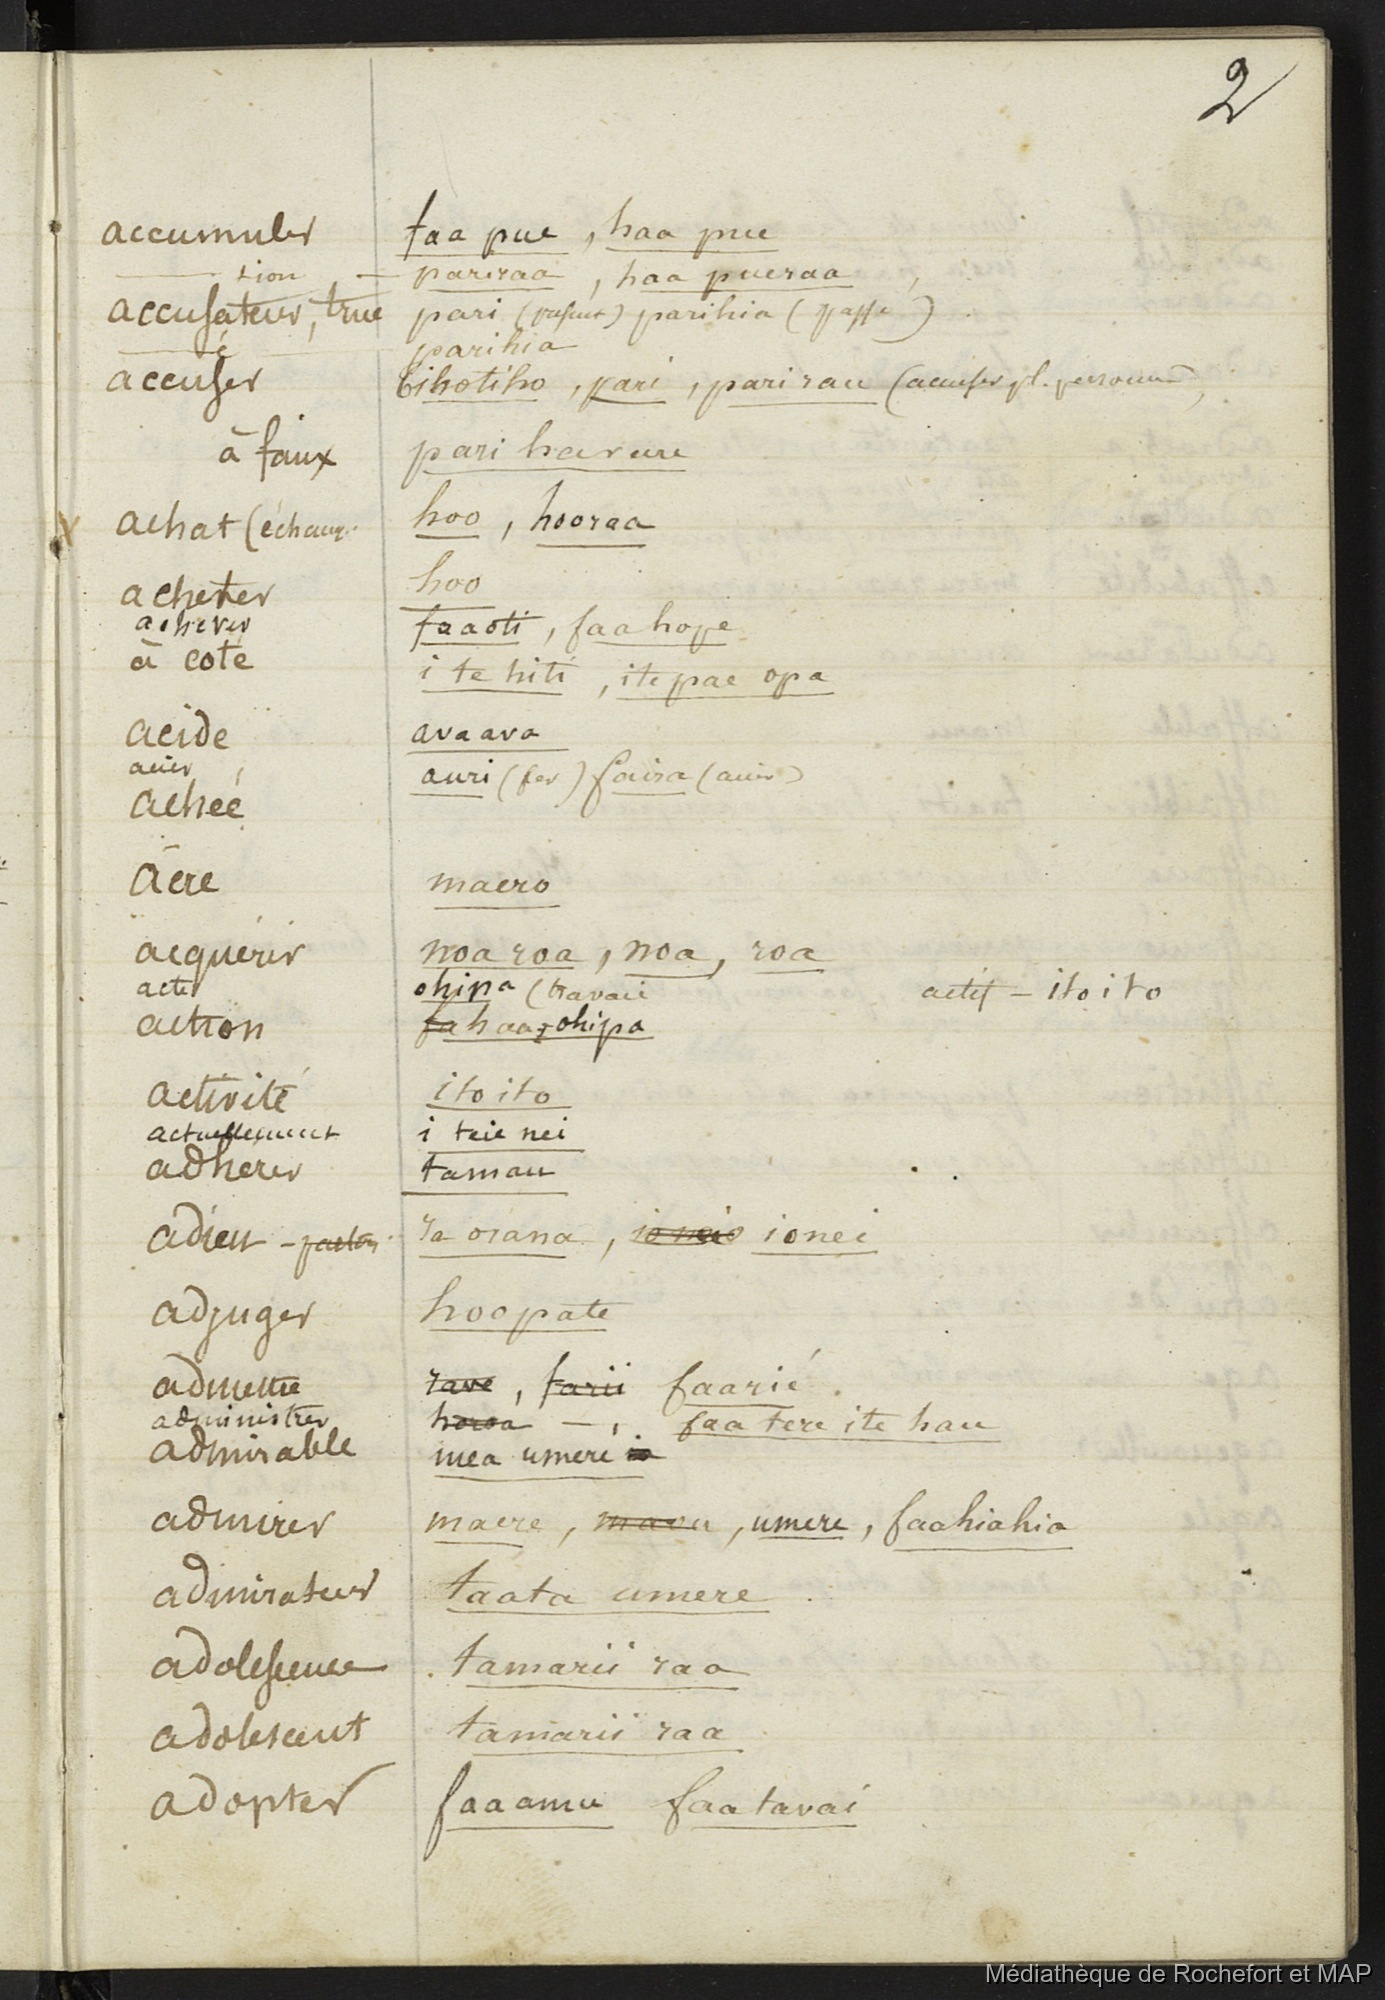 2
accumuler faa pue, haa pue
tion — pariraa, haa pueraa
accusateur, trice pari (présent) parihia (passé)
é parihia
accuser tihotiho, pari, parirau (accuser pl. personnes)
à faux pari havare
achat (échang. hoo, hooraa
acheter hoo
achever faaoti, faahope
à coté i te hiti, ite pae opa
acide avaava
acier auri (fer) faira (acier)
achée
âcre maero
acquérir noaroa, noa, roa
acte ohipa (travail actif — itoito
action fahaa, ohipa
activité itoito
actuellement i teie nei
adhérer tamau
adieu ia orana, ionei
adjuger hoopate
admettre rave, farii faarié.
administrer horoa —, faatere ite hau
admirable mea umere
admirer maere, umere, faahiahia
admirateur taata umere
adolescence tamarii raa
adolescent tamarii raa
adopter faaamu faatavai
Médiathèque de Rochefort et MAP